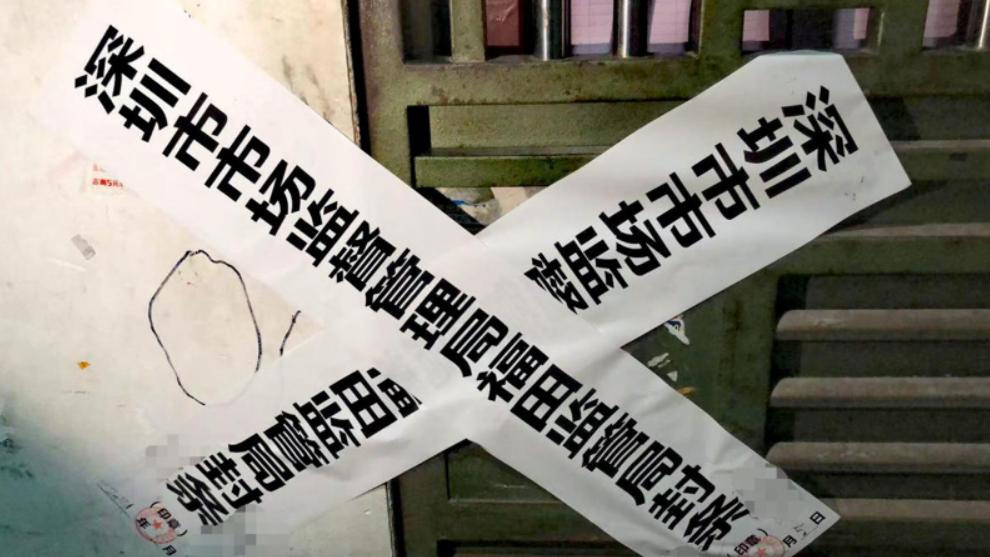 深圳市市场监督管理局福田监管局封条
（印章）
月 日
深圳市市场监督
田监管局封条
（印章）
年 月